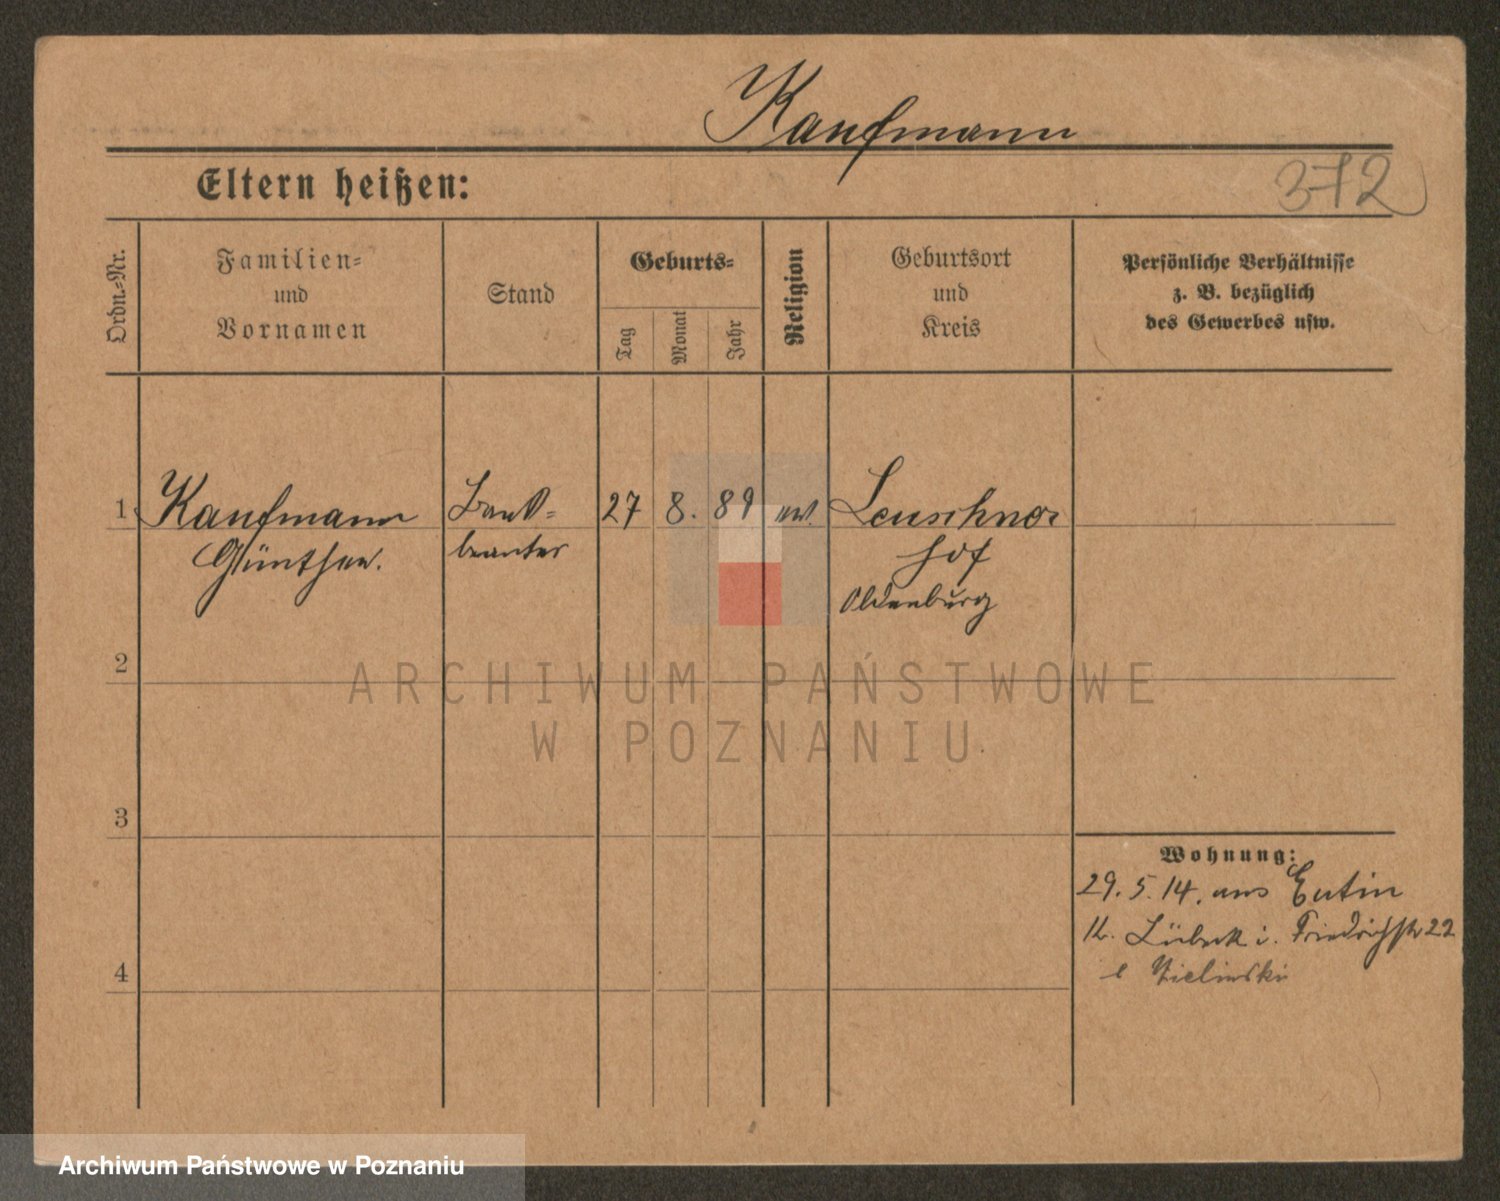 Kaufmann
Eltern heißen:
372
Ordn.-Nr.
Familien-
und
Vornamen
Stand
Geburts-
Tag
Monat
Jahr
Religion
Geburtsort
und
Kreis
Persönliche Verhältnisse
z. B. bezüglich
des Gewerbes usw.
1 Kaufmann Bank- 27 8. 89 ev. Leuschner
Günther. beamter hof
Oldenburg
2
ARCHIWUM PAŃSTWOWE
W POZNANIU
3
Wohnung:
29. 5. 14. aus Eutin
Lübeck i. Friedrichstr 22
4
Zielinski
Archiwum Państwowe w Poznaniu